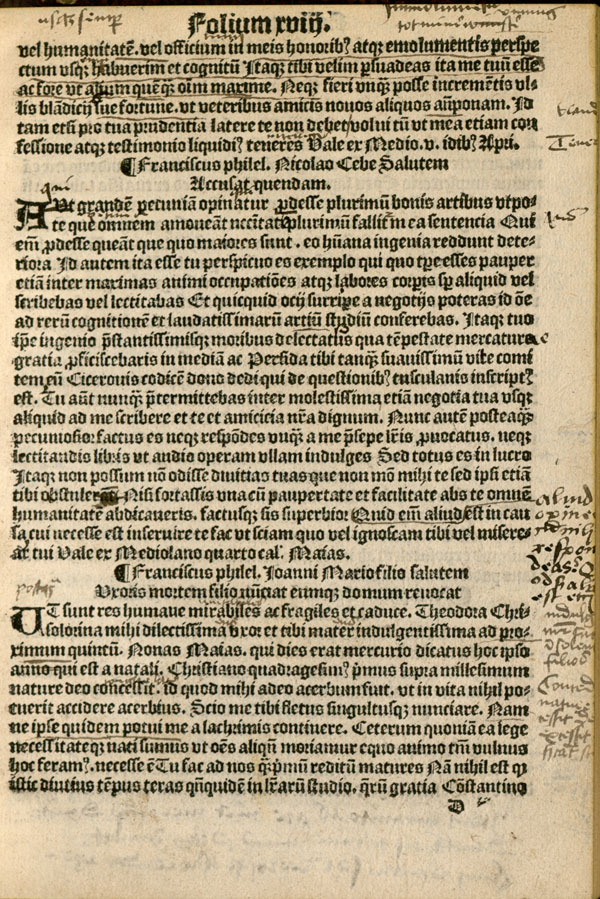 Folium xviij.
vel humanitatē. vel officium in meis honorib⁹ atqꝫ emolumentis perspe
ctum vsqꝫ habuerim et cognitū Itaqꝫ tibi velim ꝑsuadeas ita me tuū esse
ac fore vt alium quēqꝫ oīm maxime. Neqꝫ fieri vnqꝫ̄ posse incrementis vl-
lis blādicijs sue fortune. vt veteribus amicis nouos aliquos aūponam. Id
tam etsi pro tua prudentia latere te non debet volui tū vt mea etiam con
fessione atqꝫ testimonio liquidi⁹ teneres Uale ex Medio. v. idib⁹ Apri.
¶ Franciscus philel. Nicolao Cebe Salutem
Accusat quendam.
qui
AUt grandē pecuniā opinatur ꝓdesse plurimū bonis artibus vtpo-
te que omnem amoueāt necc̄itatē plurimū fallit̄ m ea sentencia Que
em̄ ꝓdesse queāt que quo maiores sunt. eo hūana ingenia reddunt dete-
riora Id autem ita esse tu perspicuo es exemplo qui quo tpꝫe esses pauper
etiā inter maximas animi occupatiōes atqꝫ labores corꝑis sꝑ aliquid vel
scribebas vel lectitabas Et quicquid ocij surripe a negotijs poteras id oē
ad rerū cognitionē et laudatissimarū artiū studiū conferebas. Itaqꝫ tuo
ip̄e ingenio p̄stantissimisqꝫ moribus delectatus qua tēpestate mercature
gratia ꝓficiscebaris in mediā ac Persida tibi tanqꝫ̄ suauissimū vite comi
tem eū Ciceronis codicē dono dedi qui de questionib⁹ tusculanis inscript⁹
est. Tu aūt nunqꝫ̄ p̄termittebas inter molestissima etiā negotia tua vsqꝫ
aliquid ad me scribere et te et amicicia nr̄a dignum. Nunc autē posteaqꝫ̄
pecuniosior factus es neqꝫ respōdes vnqꝫ̄ a me p̄sepe lr̄is ꝓuocatus. neqꝫ
lectitandis libris vt audio operam vllam indulges Sed totus es in lucro
Itaqꝫ non possum nō odisse diuitias tuas que non mō mihi te sed ipsi etiā
tibi obstulerūt Nisi fortassis vna cū paupertate et facilitate abs te omnē
humanitatē abdicaueris. factusqꝫ sis superbior Quid em̄ aliud est in cau
sa cui necesse est inseruire te fac vt sciam quo vel ignoscam tibi vel misere-
ar tui Uale ex Mediolano quarto cal. Maias.
¶ Franciscus philel. Joanni Mario filio salutem
Uxoris mortem filio nūciat eumqꝫ domum reuocat
UT sunt res humane mirabiles ac fragiles et caduce. Theodora Chri-
solorina mihi dilectissima vxor et tibi mater indulgentissima ad pro-
ximum quintū. Nonas Maias. qui dies erat mercurio dicatus hoc ipso
anno qui est a natali. Christiano quadragesim⁹ p̄mus supra millesimum
nature deo concessit. id quod mihi adeo acerbum fuit. vt in vita nihil po-
tuerit accidere acerbius. Scio me tibi fletus singultusqꝫ nunciare. Nam
ne ipse quidem potui me a lachrimis continere. Ceterum quoniā ea lege
necessitateqꝫ nati sumus vt oēs aliqn̄ moriamur equo animo tm̄ vulnus
hoc feram⁹. necesse ē Tu fac ad nos qꝫ̄p̄mū reditū matures Nā nihil est qꝫ
istic diutius tēpus teras qn̄quidē in lr̄arū studio. qrū gratia Cōstantino
D